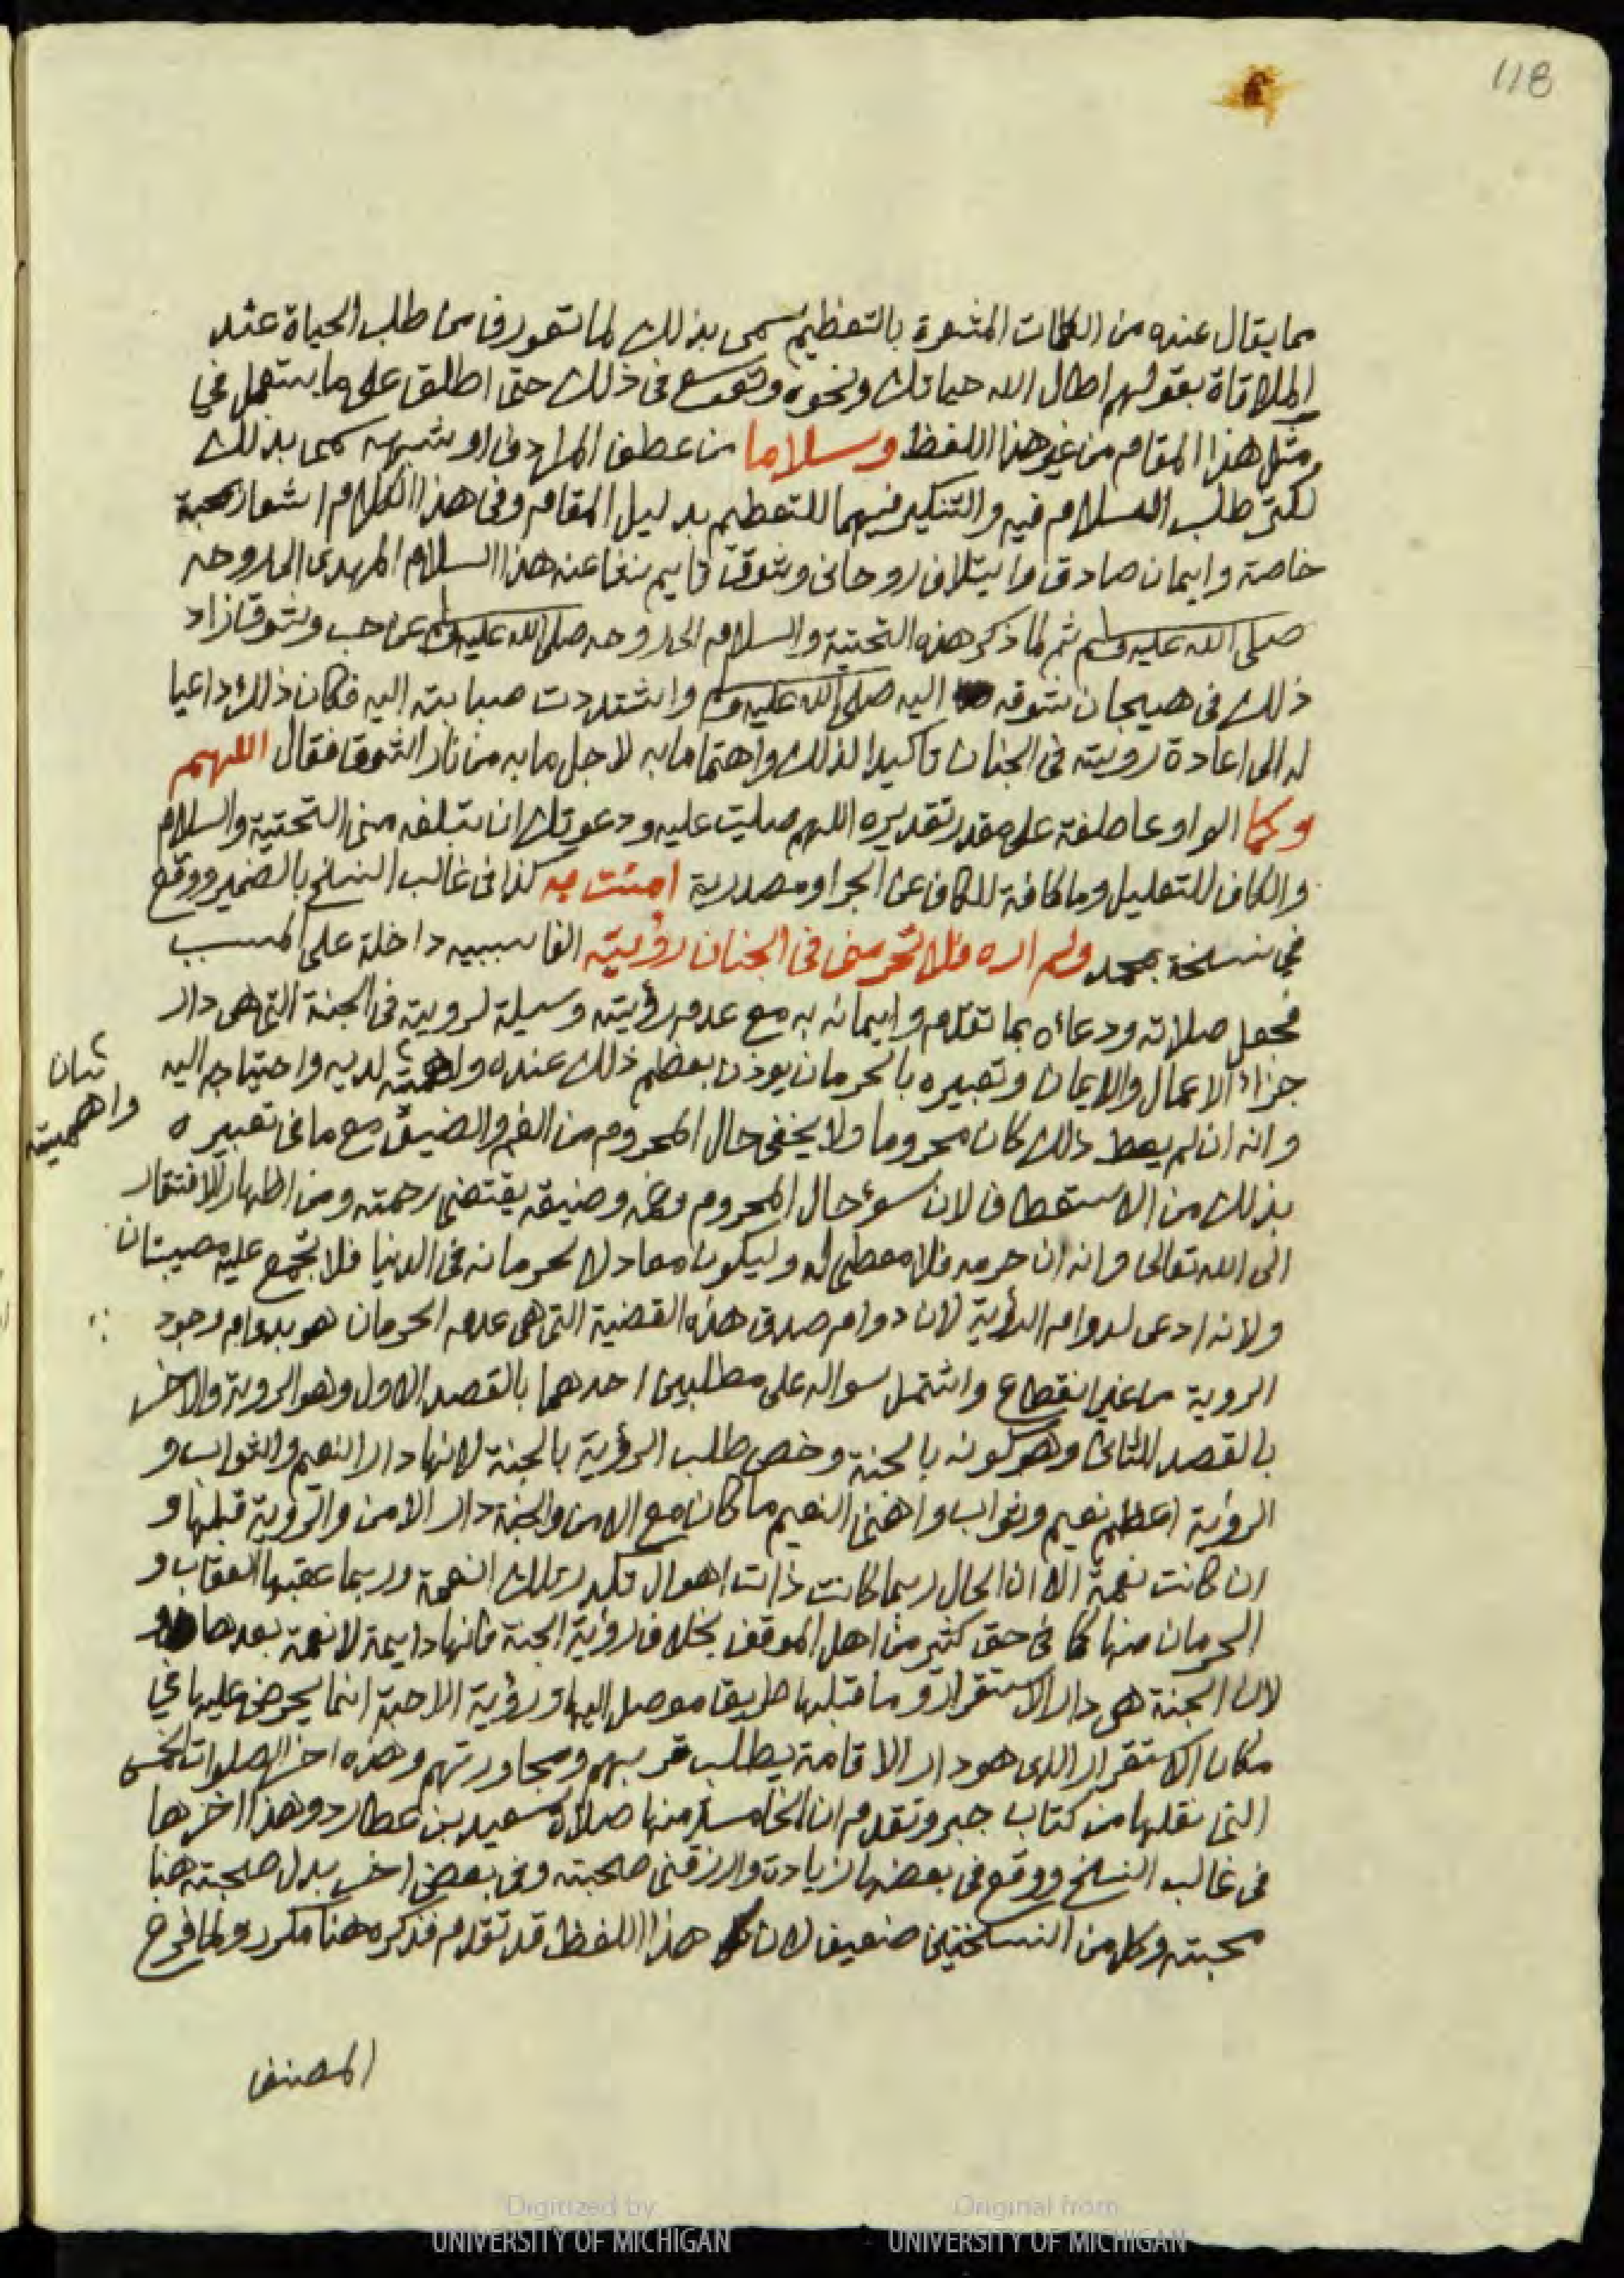 118
مما يقال عنده من الكلمات المشعرة بالتعظيم سمى بذلك لما تعورف من طلب الحياة عند
الملاقاة بقولهم اطال الله حياتك ونحوه وتوسع فى ذلك حتى اطلق على ما يستعمل في
مثل هذا المقام من غير هذا اللفظ وسلاما من عطف المرادف او شبهه سمى بذلك
لكثرة طلب السلام فيه والتنكير فيهما للتعظيم بدليل المقام وفى هذا الكلام اشعار بمحبة
خاصة وايمان صادق وايتلاف روحانى وشوق قايم نشا عنه هذا السلام المهدى الى روحه
صلى الله عليه وسلم ثم لما ذكر هذه التحية والسلام الى روحه صلى الله عليه وسلم عن حب وشوق زاد
ذلك فى هيجان شوقه اليه صلى الله عليه وسلم واشتدت صبابته اليه فكان ذلك داعيا
له الى اعادة رويته فى الجنان تاكيدا لذلك واهتماما به لاجل ما به من نار الشوق فقال اللهم
وكما الواو عاطفة على مقدر تقديره اللهم صليت عليه ودعوتك ان تبلغه منى التحية والسلام
والكاف للتعليل وما كافة للكاف عن الجر او مصدرية امنت به كذا فى غالب النسخ بالضمير ووقع
في نسخة بمحمد ولم اره فلا تحرمنى فى الجنان رؤيته الفا سببيه داخلة على المسبب
فجعل صلاته ودعائه بما تقدم وايمانه به مع عدم رؤيته وسيلة لرويته فى الجنة التى هى دار
جزاء الاعمال والايمان وتعبيره بالحرمان يوذن بعظم ذلك عنده لديه واحتياجه اليه
شان
واهميته
وانه ان لم يعط ذلك كان محروما ولا يخفى حال المحروم من الغم والضيق مع ما فى تعبيره
بذلك من الاستعطاف لان سوء حال المحروم وغمه وضيقه يقتضى رحمته ومن اظهار الافتقار
الى الله تعالى وانه ان حرمه فلا معطى له وليكون معادلا لحرمانه فى الدنيا فلا تجمع عليه مصيبتان
ولانه ادعى لدوام الرؤية لان دوام صدق هذه القضية التى هى عدم الحرمان هو بدوام وجود
الروية من غير انقطاع واشتمل سواله على مطلبين احدهما بالقصد الاول وهو الروية والاخر
بالقصد الثانى وهو كونه بالجنة وخص طلب الرؤية بالجنة لانها دار النعيم والثواب و
الرؤية اعظم نعيم وثواب واهنى النعيم ما كان مع الامن والجنة دار الامن والروية قبلها و
ان كانت نعمة الا ان الحال ربما كانت ذات اهوال تكدر تلك النعمة وربما عقبها العقاب و
الحرمان منها كما فى حق كثير من اهل الموقف بخلاف رؤية الجنة فانها دايمة لا نقمة بعدها
لان الجنة هى دار الاستقرار وما قبلها طريق موصل اليها ورؤية الاحبة انما يحرض عليها في
مكان الاستقرار الذى هو دار الاقامة يطلب قربهم ومجاورتهم وهذه اخر الصلوات الخمس
التى نقلها من كتاب جبر وتقدم ان الخامسة منها صلاة سعيد بن عطارد وهذا اخرها
فى غالب النسخ ووقع فى بعضها زيادة وارزقنى صحبته وفى بعض اخر بدل صحبته هنا
محبته وكل من النسختين ضعيف لان هذا اللفظ قد تقدم فذكره هنا مكرر ولما فرغ
المصنف
Digitized by
UNIVERSITY OF MICHIGAN
Original from
UNIVERSITY OF MICHIGAN